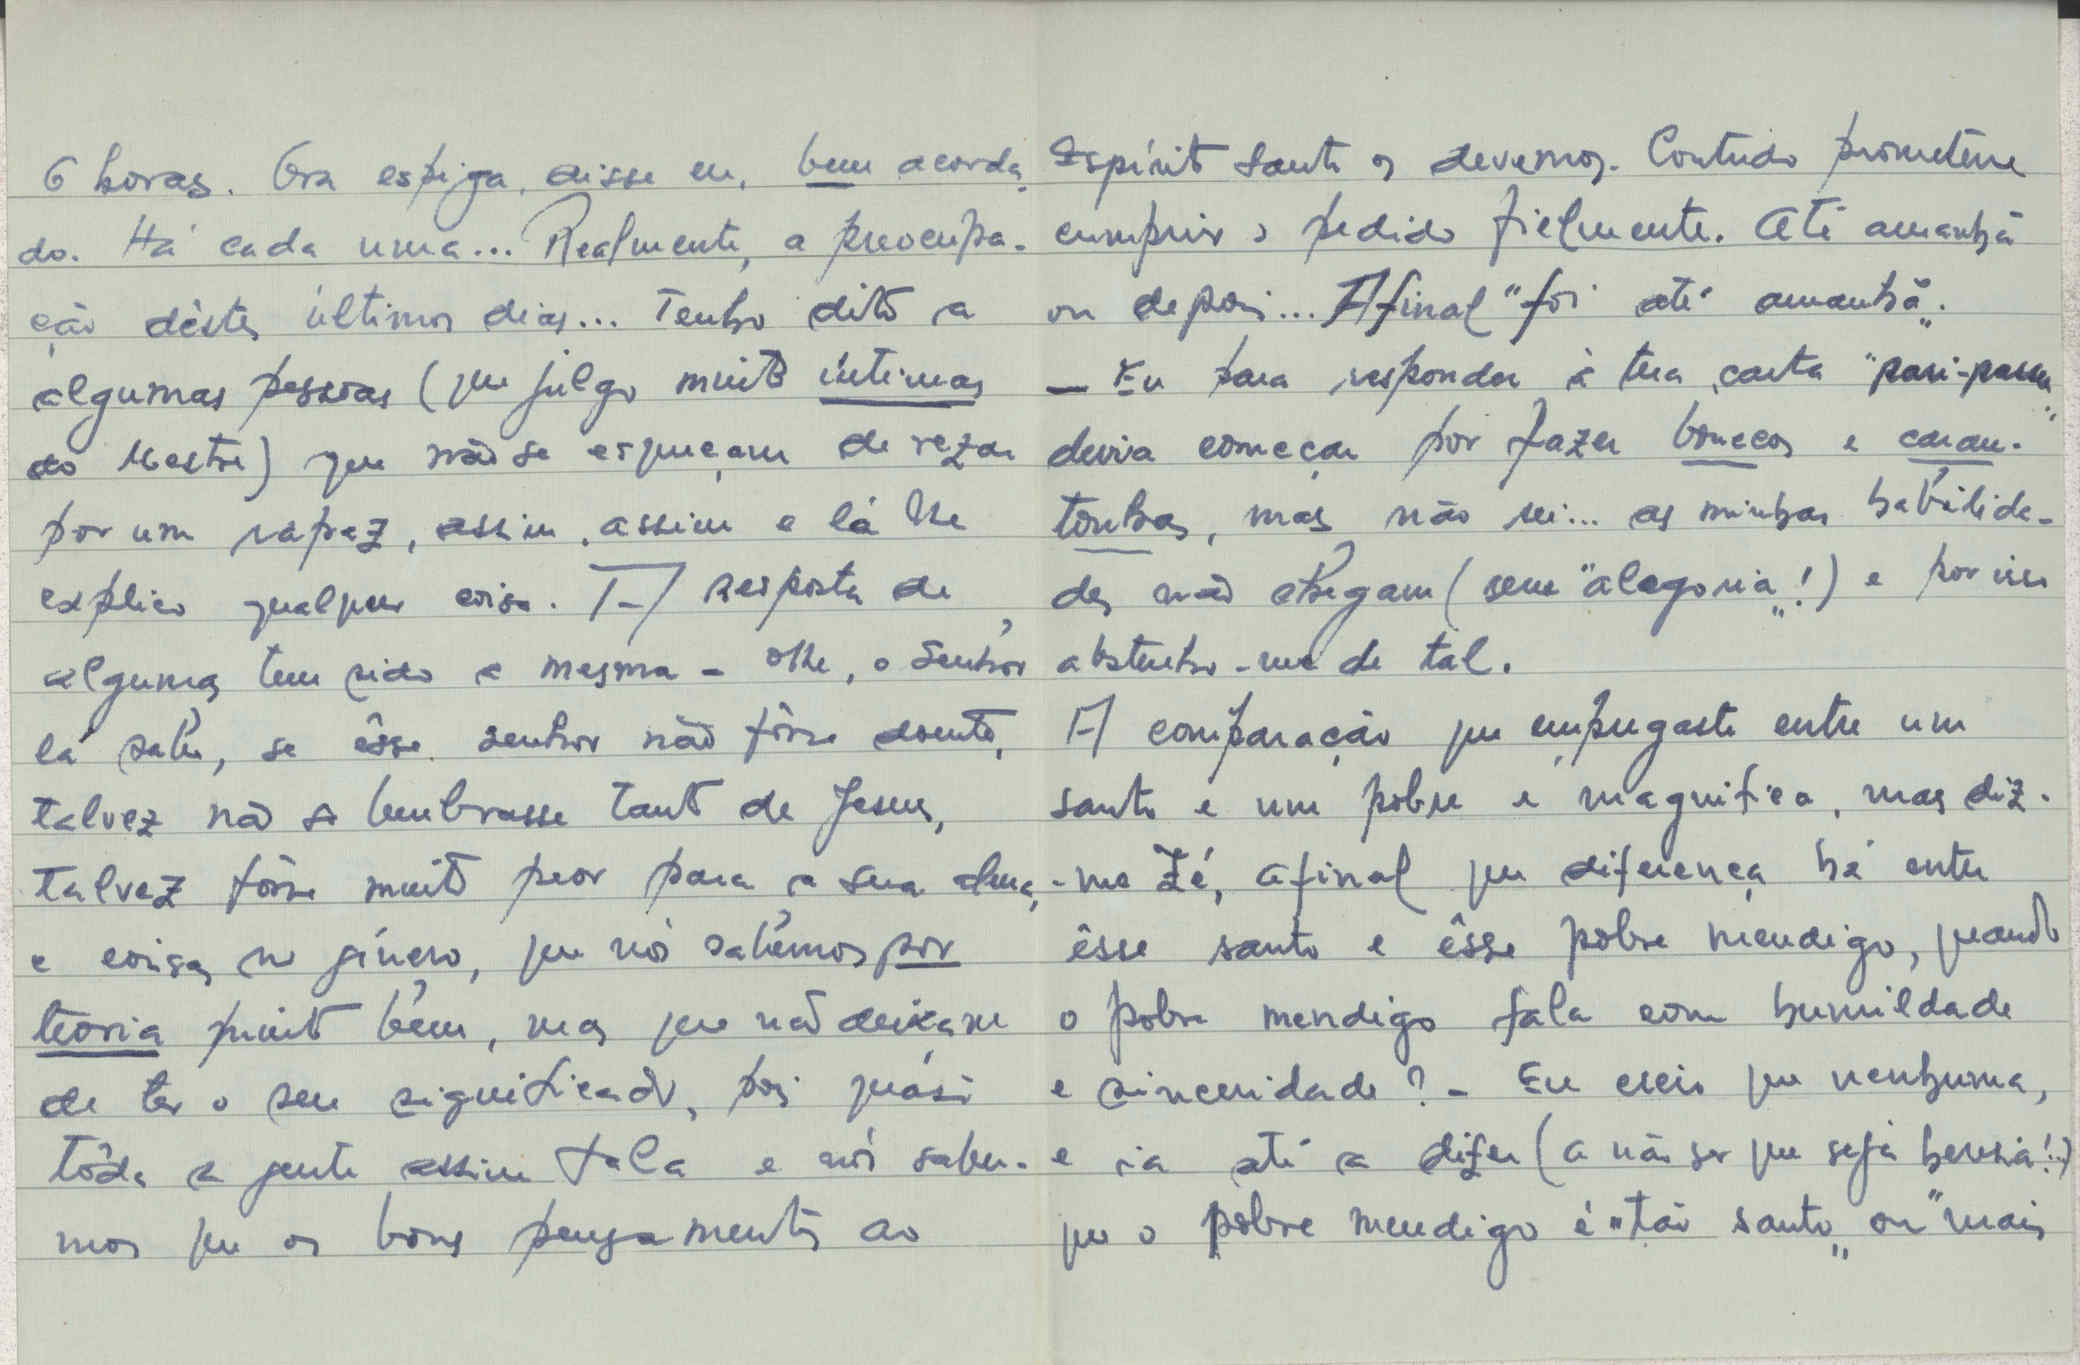 6 horas. Ora espiga, disse eu, bem acorda
do. Há cada uma... Realmente, a preocupa-
ção dêstes últimos dias... Tenho dito a
algumas pessoas (que julgo muito íntimas
do Mestre) que não se esqueçam de rezar
por um rapaz, assim, assim e lá lhe
explico qualquer coisa. A resposta de
algumas tem sido a mesma - olhe, o Senhor
lá sabe, se êsse senhor não fôsse doente,
talvez não se lembrasse tanto de Jesus,
talvez fôsse muito peor para a sua alma,
e coisas no género, que nós sabemos por
teoria muito bem, mas que não deixam
de ter o seu significado, pois quási
tôda a gente assim fala e nós sabe-
mos que os bons pensamentos ao
Espírito Santo os devemos. Contudo prometem
cumprir o pedido fielmente. Até amanhã
ou depois... Afinal "foi até amanhã".
— Eu para responder à tua carta "pari-passu"
devia começar por fazer bonecos e caran-
tonhas, mas não sei... as minhas habilida-
des não chegam (sem "alegoria"!) e por isso
abstenho-me de tal.
A comparação que empregaste entre um
santo e um pobre é magnifica, mas diz-
-me Zé, afinal que diferença há entre
êsse santo e êsse pobre mendigo, quando
o pobre mendigo fala com humildade
e sinceridade? - Eu creio que nenhuma,
e ia até a dizer (a não ser que seja heresia!..)
que o pobre mendigo é "tão santo" ou "mais